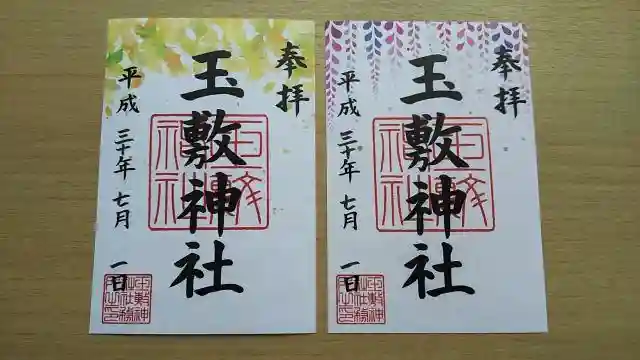 奉拝
玉敷神社
平成三十年七月一日
奉拝
玉敷神社
平成三十年七月一日